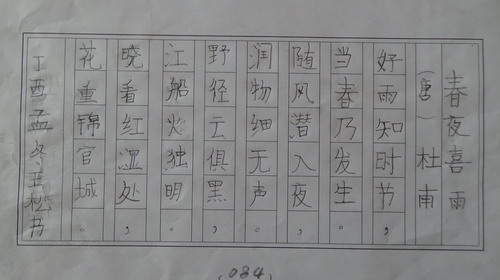 春夜喜雨
（唐）杜南
好雨知时节，
当春乃发生。
随风潜入夜，
润物细无声。
野径云俱黑，
江船火独明。
晓看红湿处，
花重锦官城。
丁酉孟冬王松书
034